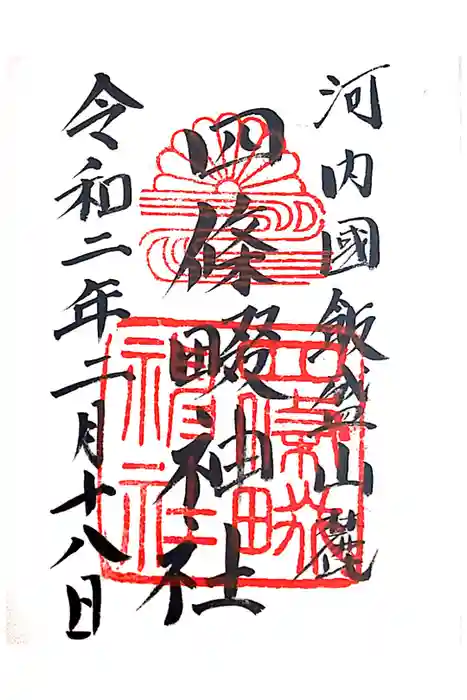 河内國飯盛山麓
四條畷神社
令和二年二月十八日
四條畷神社